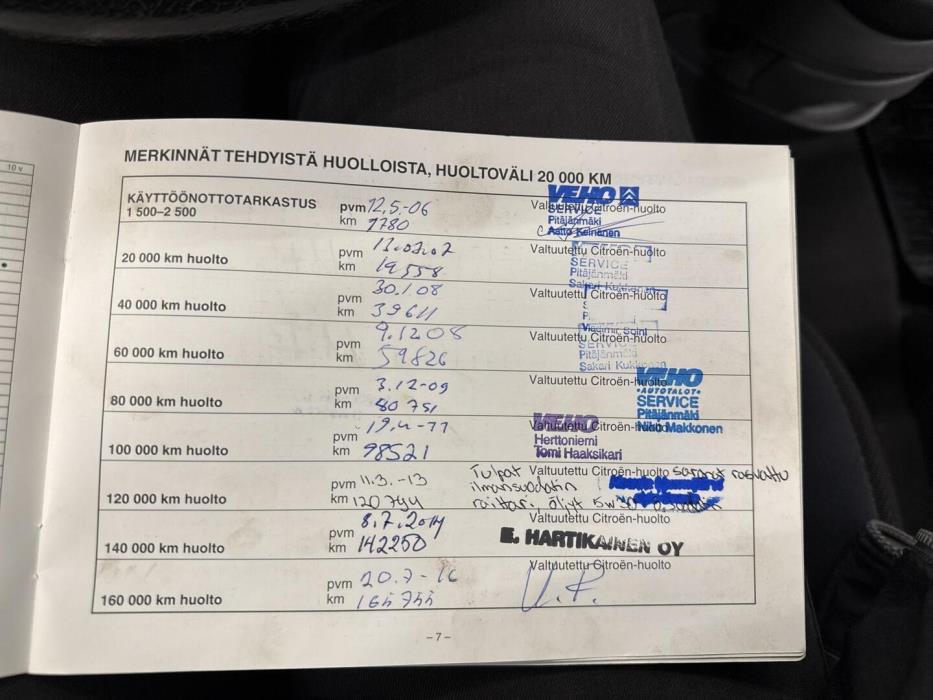 10 v
MERKINNÄT TEHDYISTÄ HUOLLOISTA, HUOLTOVÄLI 20 000 KM
KÄYTTÖÖNOTTOTARKASTUS
1 500–2 500
pvm 12.5-06
km 1780
Valtuutettu Citroën-huolto
VEHO
SERVICE
Pitäjänmäki
Aatto Keinänen
20 000 km huolto
pvm
km 19558
Valtuutettu Citroën-huolto
SERVICE
Pitäjänmäki
Sakari Kukkonen
40 000 km huolto
pvm 30.1.08
km 39611
Valtuutettu Citroën-huolto
Vladimir Soini
60 000 km huolto
pvm 9.12.08
km 59826
Valtuutettu Citroën-huolto
SERVICE
Pitäjänmäki
Sakari Kukkonen
80 000 km huolto
pvm 3.12-09
km 80751
Valtuutettu Citroën-huolto
VEHO
•AUTOTALOT•
SERVICE
Pitäjänmäki
Niilo Makkonen
100 000 km huolto
pvm 19.4-11
km 98521
Valtuutettu Citroën-huolto
VEHO
Herttoniemi
Tomi Haaksikari
120 000 km huolto
pvm 11.3.-13
km 120794
Valtuutettu Citroën-huolto
Tulpat saranat rasvattu
ilmansuodatin
raittari, öljyt 5w30
140 000 km huolto
pvm 8.7.2014
km 142250
Valtuutettu Citroën-huolto
E. HARTIKAINEN OY
160 000 km huolto
pvm 20.7-16
km 164744
Valtuutettu Citroën-huolto
–7–